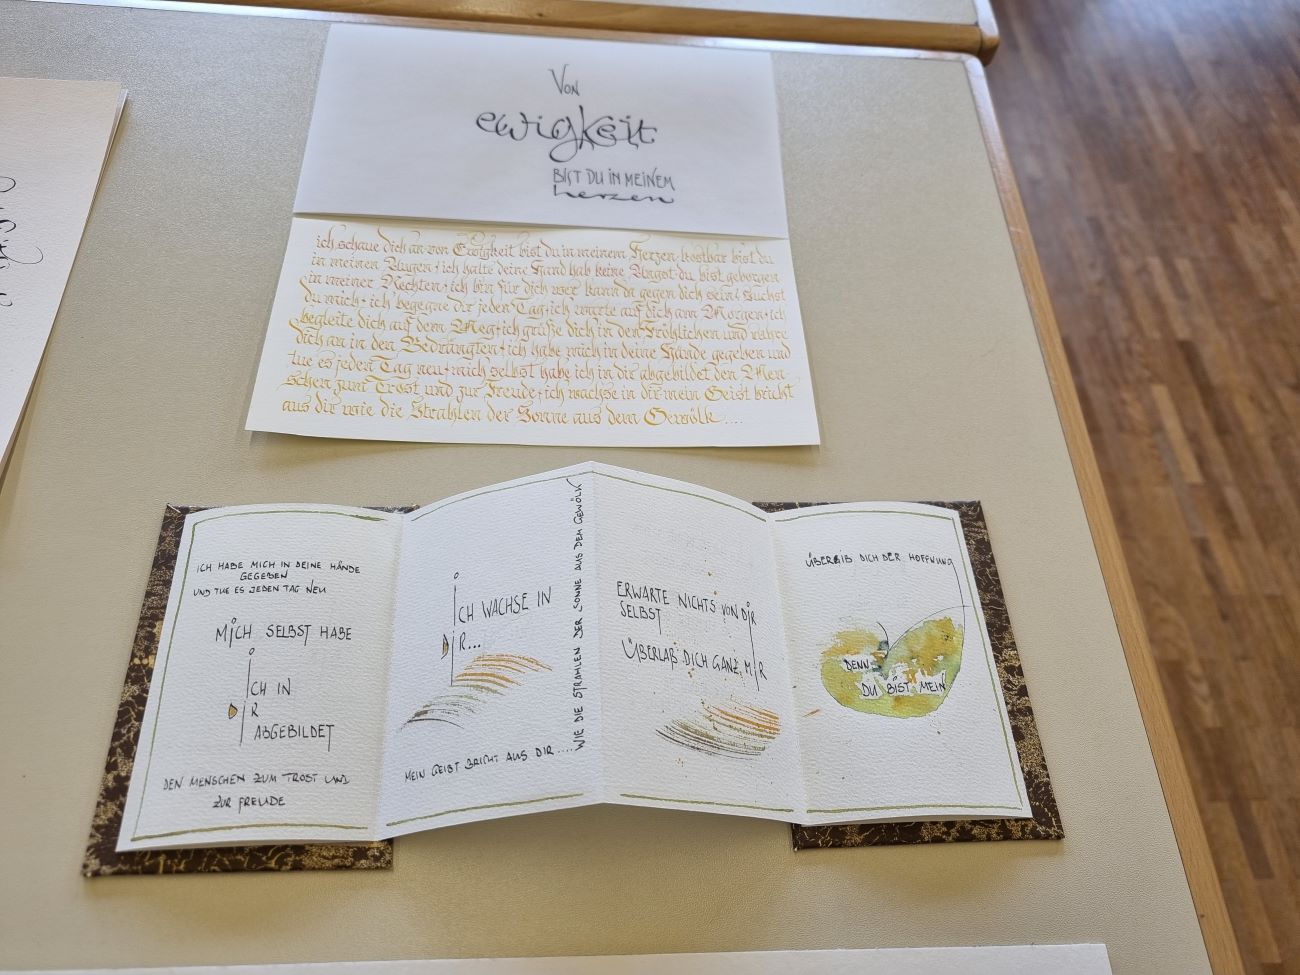 Von
ewigkeit
BIST DU IN MEINEM
herzen
ich schaue dich an von Ewigkeit bist du in meinem Herzen kostbar bist du
in meinen Augen + ich halte deine Hand hab keine Angst du bist geborgen
in meiner Rechten + ich bin für dich wer kann da gegen dich sein + suchst
du mich + ich begegne dir jeden Tag + ich warte auf dich am Morgen + ich
begleite dich auf dem Weg + ich grüße dich in den Fröhlichen und rühre
dich an in den Bedrängten + ich habe mich in deine Hände gegeben und
tue es jeden Tag neu + mich selbst habe ich in dir abgebildet den Men-
schen zum Trost und zur Freude + ich wachse in dir mein Geist bricht
aus dir wie die Strahlen der Sonne aus dem Gewölk....
ICH HABE MICH IN DEINE HÄNDE
GEGEBEN
UND TUE ES JEDEN TAG NEU
MICH SELBST HABE
ICH IN
DIR
ABGEBILDET
DEN MENSCHEN ZUM TROST UND
ZUR FREUDE
ICH WACHSE IN
DIR...
MEIN GEIST BRICHT AUS DIR....
WIE DIE STRAHLEN DER SONNE AUS DEM GEWÖLK
ERWARTE NICHTS VON DIR
SELBST
ÜBERLAß DICH GANZ MIR
ÜBERGIB DICH DER HOFFNUNG
DENN
DU BIST MEIN